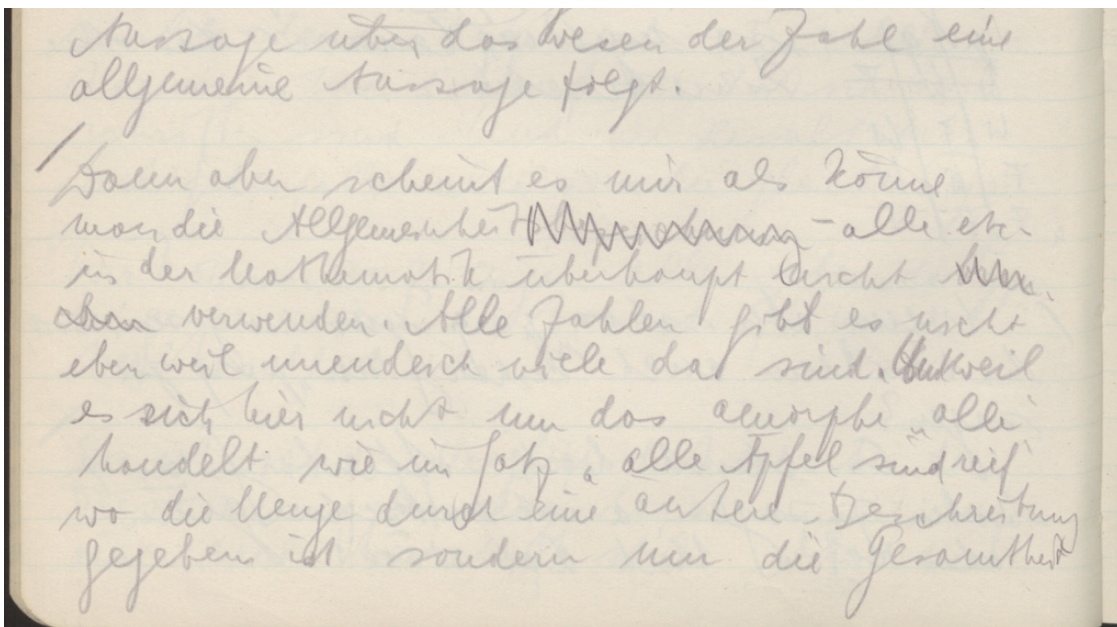 Aussage über das Wesen der Zahl eine
allgemeine Aussage folgt.
/
Dann aber scheint es mir als könne
man die Allgemeinheit – alle etc.
in der Mathematik überhaupt nicht
verwenden. Alle Zahlen gibt es nicht
eben weil unendlich viele da sind. Und weil
es sich hier nicht um das amorphe „alle“
handelt wie im Satz „alle Äpfel sind reif“
wo die Menge durch eine äußere Beschreibung
gegeben ist sondern um die Gesamtheit